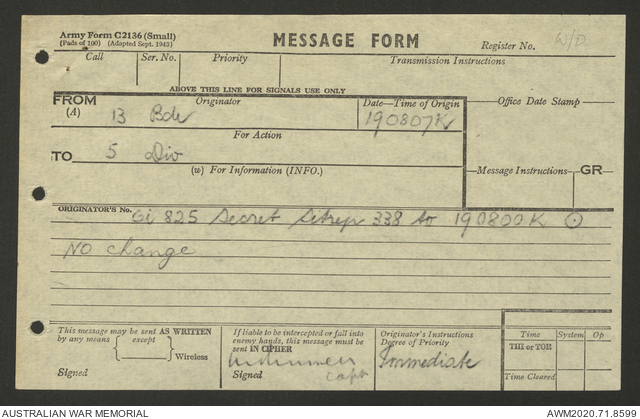 Army Form C2136 (Small)
(Pads of 100) (Adapted Sept. 1943)
MESSAGE FORM
Register No. W/D
Call Ser. No. Priority Transmission Instructions
ABOVE THIS LINE FOR SIGNALS USE ONLY
FROM Originator Date—Time of Origin Office Date Stamp
(A) 13 Bde 190807K
For Action
TO 5 Div
(w) For Information (INFO.) Message Instructions GR
ORIGINATOR'S No. Gi 825 Secret Sitrep 338 to 190800K
NO change
This message may be sent AS WRITTEN
by any means except
Wireless
Signed
If liable to be intercepted or fall into
enemy hands, this message must be
sent IN CIPHER
Signed Capt
Originator's Instructions
Degree of Priority
Immediate
Time System Op
THI or TOR
Time Cleared
AUSTRALIAN WAR MEMORIAL AWM2020.71.8599